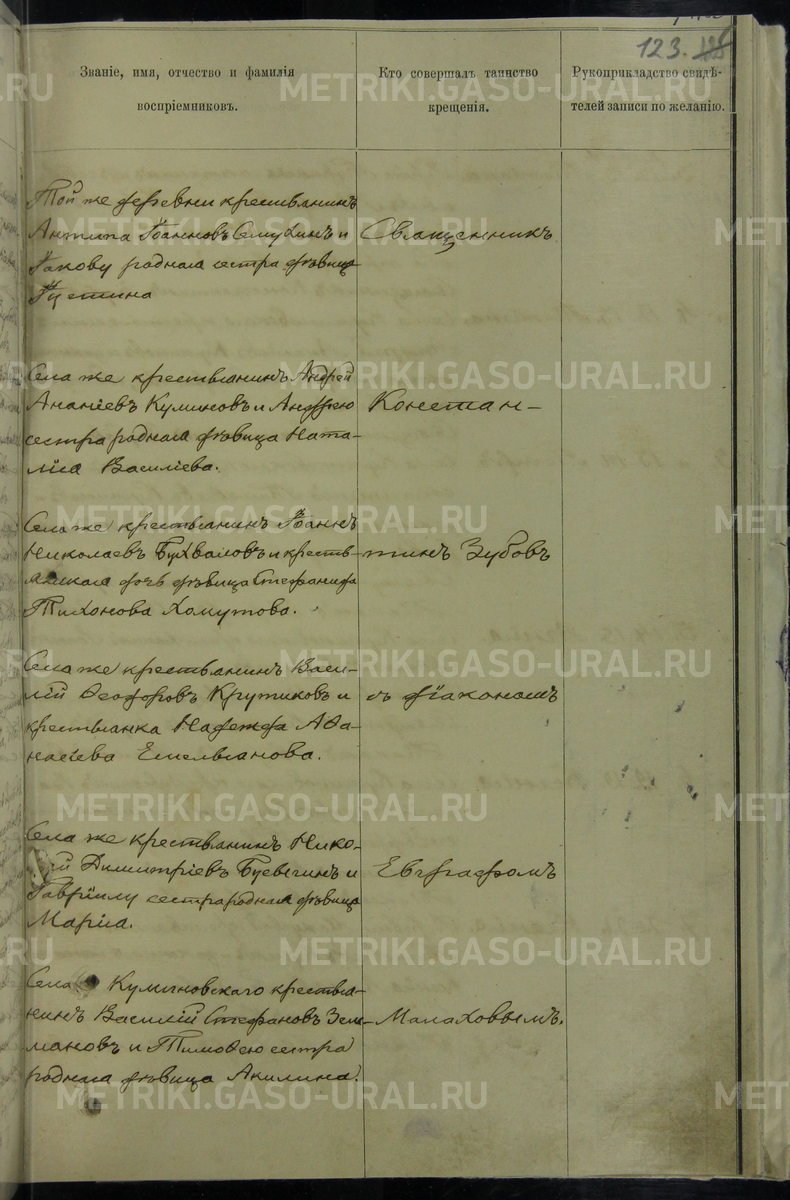 123.
Званіе, имя, отчество и фамилія
воспріемниковъ.
Кто совершалъ таинство
крещенія.
Рукоприкладство свидѣ-
телей записи по желанію.
Той же деревни крестьянинъ
Антипа Іоанновъ и
Іакову родная сестра дѣвица
Іустина
Села же крестьянинъ Андрей
Ананіевъ Куминовъ и Андрею
сестра родная дѣвица Ната-
лія Василіева.
Села же крестьянинъ Іоаннъ
Николаевъ Бухваловъ и кресть-
янская дочь дѣвица Стефанида
Тихонова Хомутова.
Села же крестьянинъ Васи-
лій Ѳеодоровъ Крутиковъ и
крестьянка Надежда Аѳа-
насіева Емельянова.
Села же крестьянинъ Нико-
лай Димитріевъ и
Гавріилу сестра родная дѣвица
Марія.
Села Куминовскаго крестья-
нинъ Василій Стефановъ Зель-
мановъ и Тимоѳею сестра
родная дѣвица Акилина.
Священникъ
Констан-
тинъ Зубовъ
съ діакономъ
Евграфомъ
Малаховымъ.
METRIKI.GASO-URAL.RU